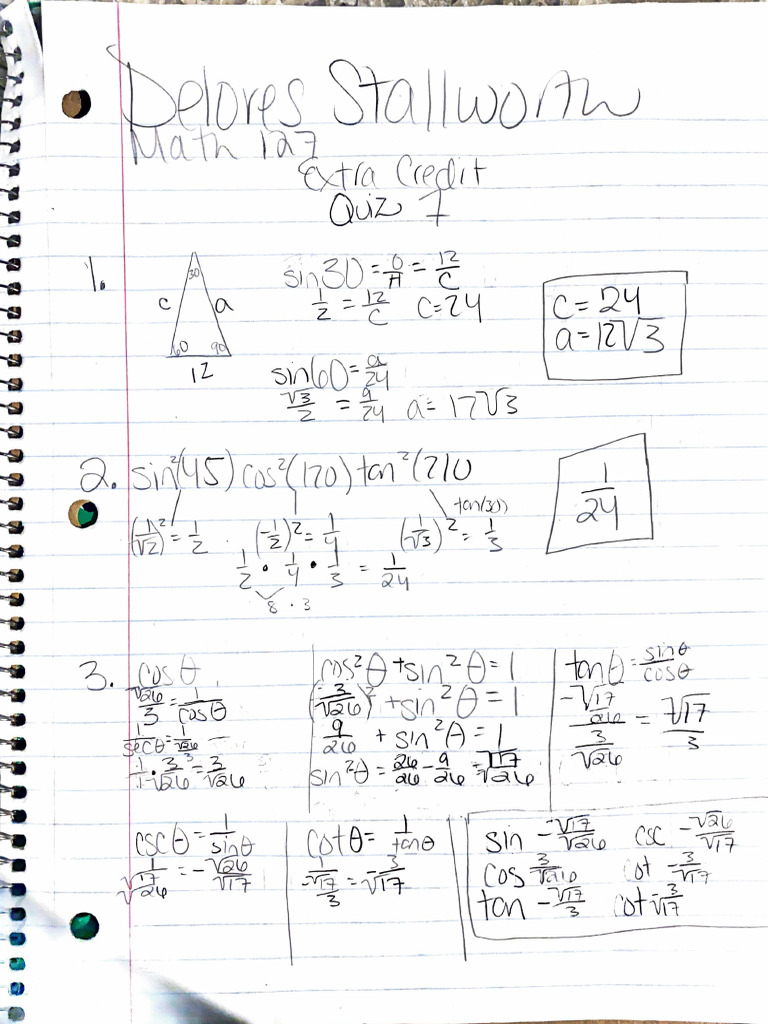 Delores Stallworth
Math 127
Extra Credit
Quiz 7
1.
30
c
a
60
90
12
sin30 = O/H = 12/C
1/2 = 12/C C=24
sin60 = a/24
√3/2 = a/24 a = 17√3
C = 24
a = 12√3
2. sin²(45) cos²(120) tan²(210
tan(30)
(1/√2)² = 1/2 (-1/2)² = 1/4 (1/√3)² = 1/3
1/2 · 1/4 · 1/3 = 1/24
8 · 3
1/24
3. cosθ
√26/3 = 1/cosθ
1/secθ = 1/√26
1/1 · 3/√26 = 3/√26
cos²θ + sin²θ = 1
(3/√26)² + sin²θ = 1
9/26 + sin²θ = 1
sin²θ = 26/26 - 9/26 = √17/√26
tanθ = sinθ/cosθ
-√17/26 / 3/√26 = √17/3
cscθ = 1/sinθ
1/√17/26 = -√26/√17
cotθ = 1/tanθ
1/-√17/3 = -3/√17
sin -√17/√26 csc -√26/√17
cos 3/√26 cot -3/√17
tan -√17/3 cot -3/√17